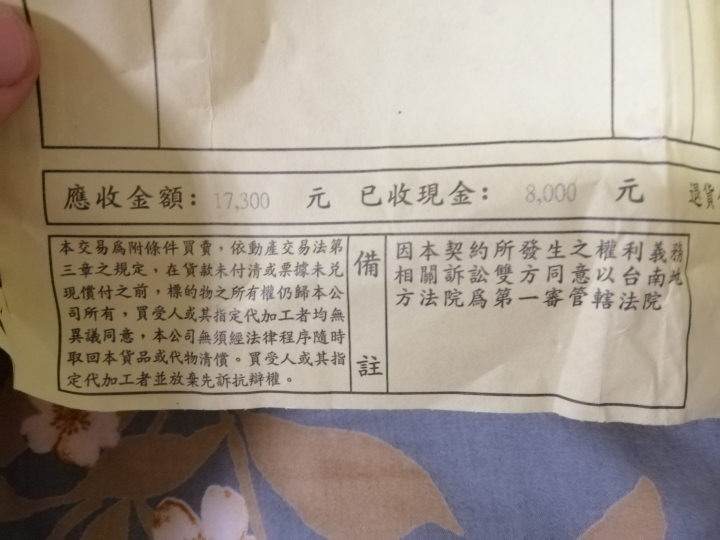 應收金額: 17,300 元 已收現金: 8,000 元 退貨
本交易爲附條件買賣，依動產交易法第
三章之規定，在貨款未付清或票據未兌
現償付之前，標的物之所有權仍歸本公
司所有，買受人或其指定代加工者均無
異議同意，本公司無須經法律程序隨時
取回本貨品或代物清償。買受人或其指
定代加工者並放棄先訴抗辯權。
備註
因本契約所發生之權利義務
相關訴訟雙方同意以台南地
方法院爲第一審管轄法院